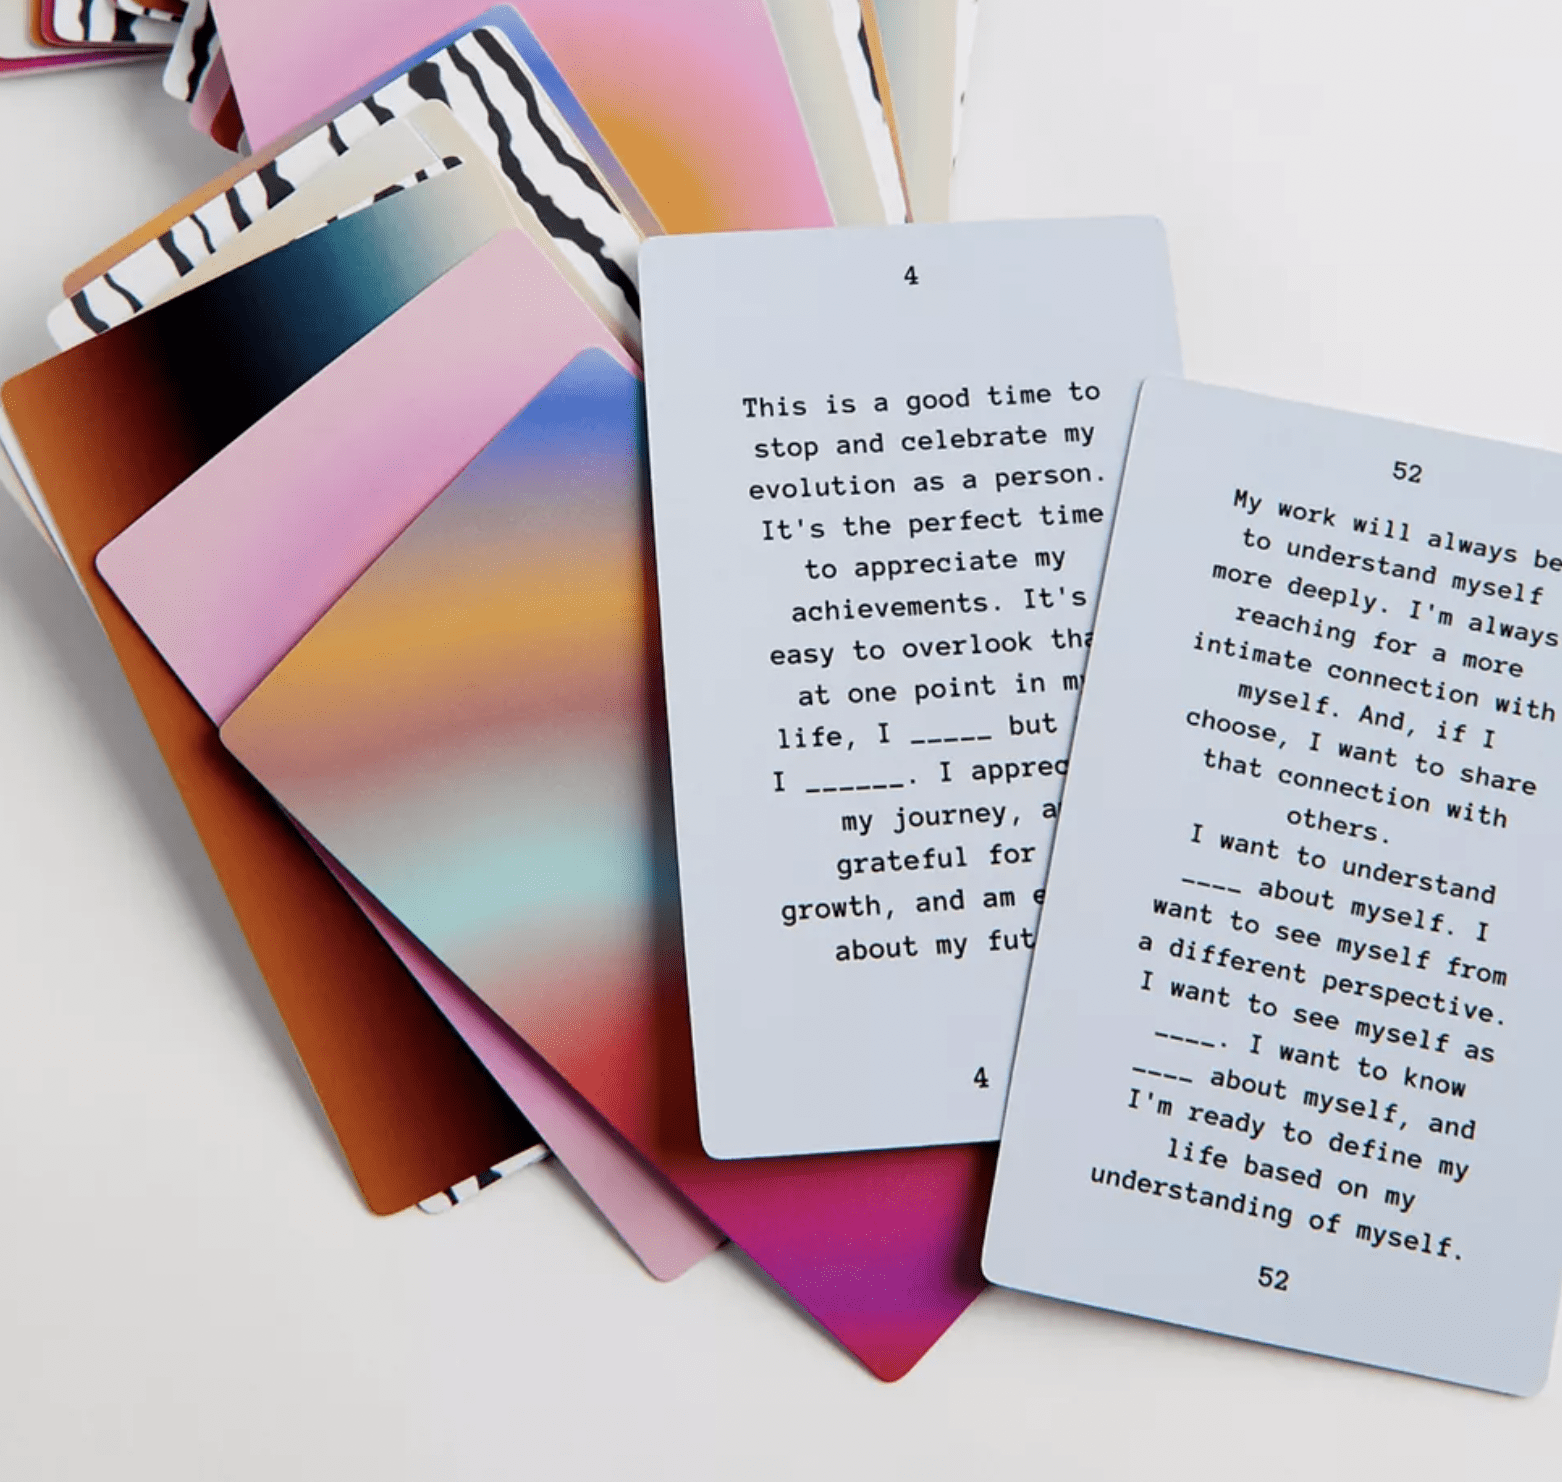 4
This is a good time to
stop and celebrate my
evolution as a person.
It's the perfect time
to appreciate my
achievements. It's
easy to overlook
at one point in
life, I _____ but
I ______. I
my journey,
grateful for
growth, and am
about my
4
52
My work will always be
to understand myself
more deeply. I'm always
reaching for a more
intimate connection with
myself. And, if I
choose, I want to share
that connection with
others.
I want to understand
____ about myself. I
want to see myself from
a different perspective.
I want to see myself as
____. I want to know
____ about myself, and
I'm ready to define my
life based on my
understanding of myself.
52